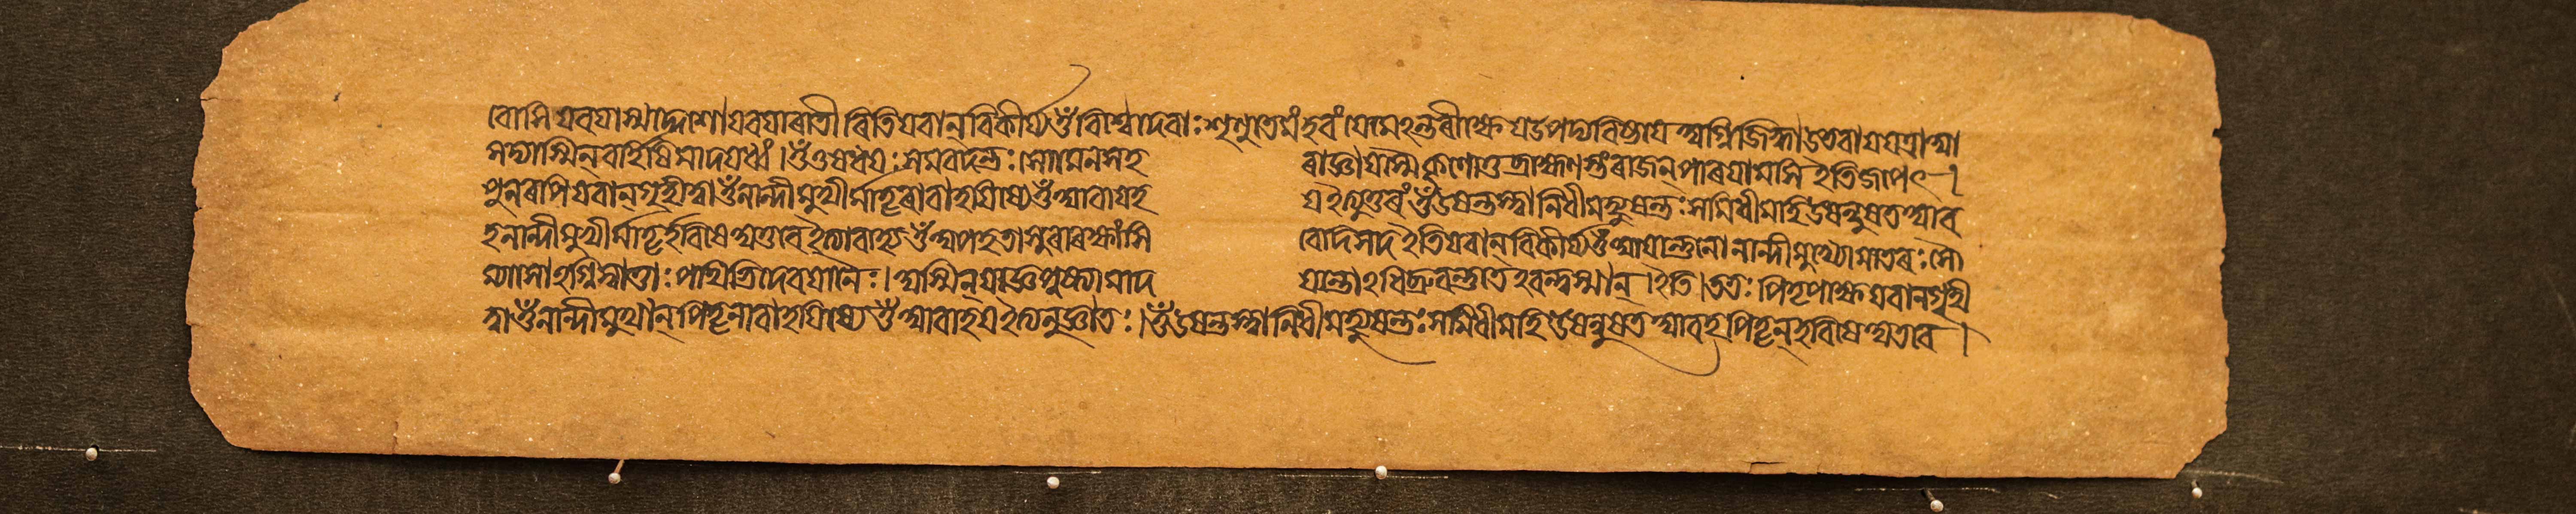 বোসিযবযাস্মদ্দ্বেশোযবযারাতীরিতিযবান্ বিকীর্য্যওঁবিশ্বেদেবাঃশৃণুতেমংহবংযেমেঽন্তরীক্ষেযেউপদ্যবিষ্ঠযেঅগ্নিজিহ্বাউতবাযযত্রাআ
সদ্যাস্মিন্ বর্হিষিমাদযধ্বং।ওঁওষধযঃসমবদন্তঃসোমেনসহ রাজ্ঞাযস্মৈকৃণোতিব্রাহ্মণস্তংরাজন্ পারযামসিইতিজপেৎ।
পুনরপিযবানগৃহীত্বাওঁনান্দীমুখীর্মাতৄরাবাহযিষ্যেওঁআবাযেহ যেইত্যুত্তরংওঁউষন্তস্ত্বানিধীমহ্যুষন্তঃসমিধীমহিউষন্নুষতআব
হনান্দীমুখীর্মাতৄর্হবিষেঅত্তবেইত্যাবাহ্যওঁঅপহতাসুরারক্ষাংসি বেদিসদইতিযবান্ বিকীর্য্যওঁআযান্তুনোনান্দীমুখ্যোমাতরঃসৌ
ম্যাসোঽগ্নিস্বাত্তাঃপথিভির্দেবযানৈঃ।অস্মিন্ যজ্ঞেপুষ্ট্যামাদ যন্তোঽধিব্রুবন্তুতেঽবন্ত্বস্মান্।ইতি।ততঃপিতৃপক্ষেযবানগৃহী
ত্বাওঁনান্দীমুখান্ পিতৄনাবাহযিষ্যেওঁআবাহযেইত্যনুজ্ঞাতঃ।ওঁউষন্তস্ত্বানিধীমহ্যুষন্তঃসমিধীমহিউষন্নুষতআবহপিতৄন্ হবিষেঅত্তবে।